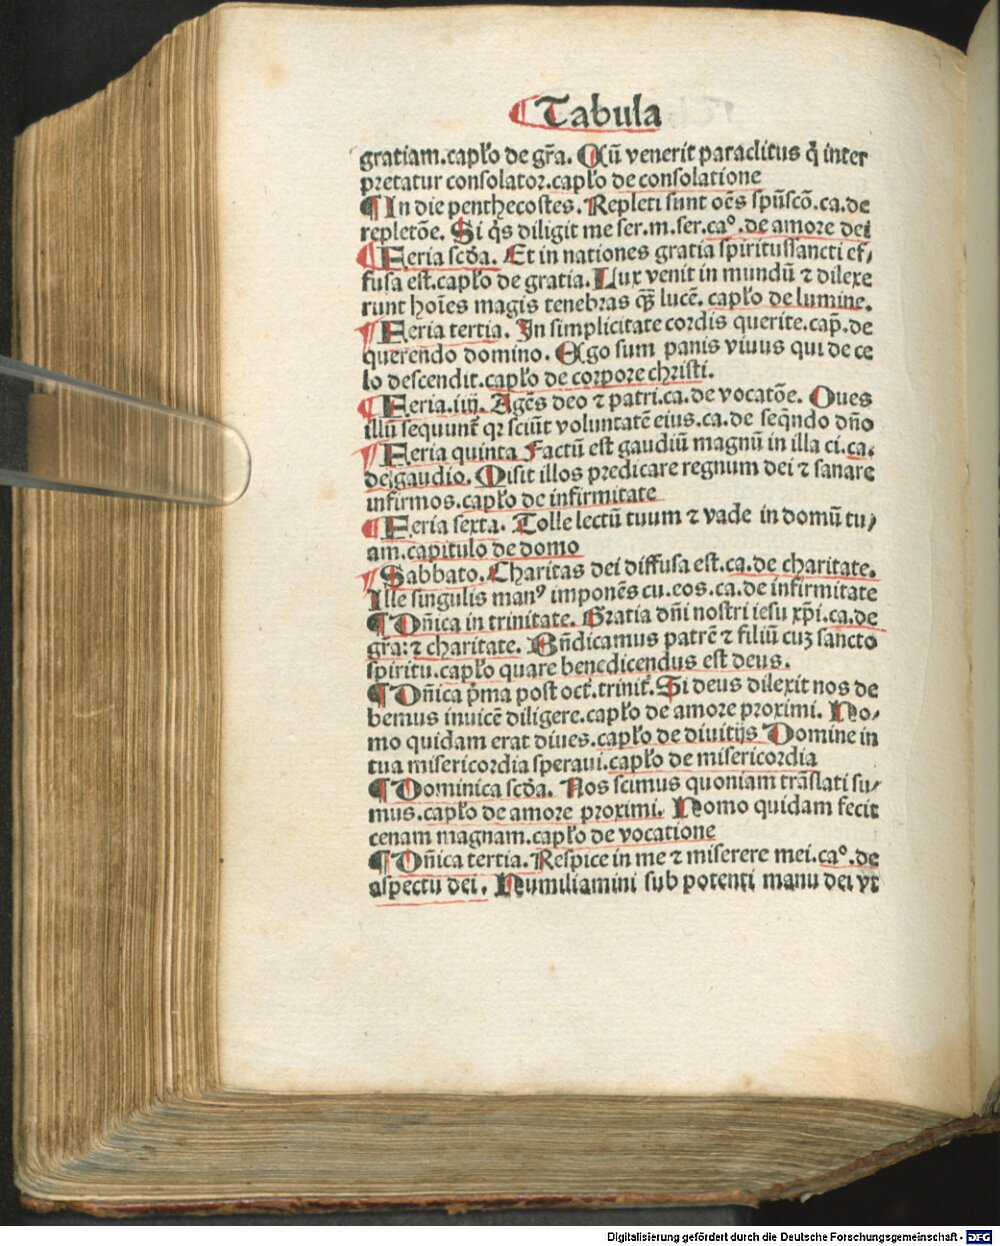 ¶Tabula
gratiam.capło de gr̃a. Cũ venerit paraclitus q̃ inter
pretatur consolator.capło de consolatione
¶In die penthecostes. Repleti sunt oẽs spũscõ.ca.de
repletõe. Si q̃s diligit me ser.m.ser.caº.de amore dei
¶Feria scďa. Et in nationes gratia spiritussancti ef⸗
fusa est.capło de gratia. Lux venit in mundũ ⁊ dilexe
runt hoĩes magis tenebras q̃ꝫ lucẽ. capło de lumine.
¶Feria tertia. In simplicitate cordis querite.cap̃.de
querendo domino. Ego sum panis viuus qui de ce
lo descendit.capło de corpore christi.
¶Feria.iiij. Agẽs deo ⁊ patri.ca.de vocatõe. Oues
illũ sequunt᷑ qꝛ sciũt voluntatẽ eius.ca.de seq̃ndo dño
¶Feria quinta Factũ est gaudiũ magnũ in illa ci.ca.
de gaudio. Misit illos predicare regnum dei ⁊ sanare
infirmos.capło de infirmitate
¶Feria sexta. Tolle lectũ tuum ⁊ vade in domũ tu⸗
am.capitulo de domo
¶Sabbato. Charitas dei diffusa est.ca.de charitate.
Ille singulis manꝰ imponẽs cu.eos.ca.de infirmitate
¶Dñica in trinitate. Gratia dñi nostri iesu xp̃i.ca.de
gr̃a: ⁊ charitate. Bñdicamus patrẽ ⁊ filiũ cuꝫ sancto
spiritu.capło quare benedicendus est deus.
¶Dñica p̃ma post oct᷑.trinit᷑. Si deus dilexit nos de
bemus inuicẽ diligere.capło de amore proximi. Ho⸗
mo quidam erat diues.capło de diuitijs Domine in
tua misericordia speraui.capło de misericordia
¶Dominica scďa. Nos scimus quoniam trãslati su⸗
mus.capło de amore proximi. Homo quidam fecit
cenam magnam.capło de vocatione
¶Dñica tertia. Respice in me ⁊ miserere mei.caº.de
aspectu dei. Humiliamini sub potenti manu dei vt
Digitalisierung gefördert durch die Deutsche Forschungsgemeinschaft - DFG